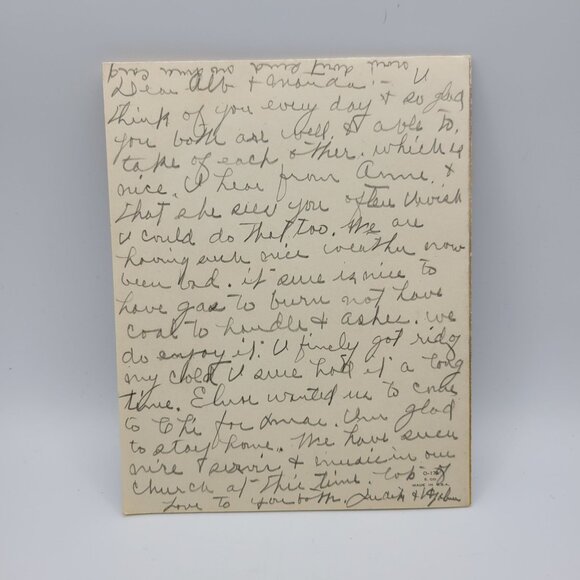 Dear Alb + Manda! - I
think of you every day & so glad
you both are well, & able to,
take of each other. which is
nice. I hear from Anne. &
that she sees you often I wish
I could do that too. We are
having such nice weather now
been bad. it sure is nice to
have gas to burn not have
coal to handle & ashes. we
do enjoy it. I finely got rid of
my cold I sure had it a long
time. Elsie wanted us to come
to Chi for Xmas. Am glad
to stay home. We have such
nice servic & music in our
church at this time. lots of
Love to you both. Judith &
O-17
MADE IN U.S.A.
dont send no Xmas card